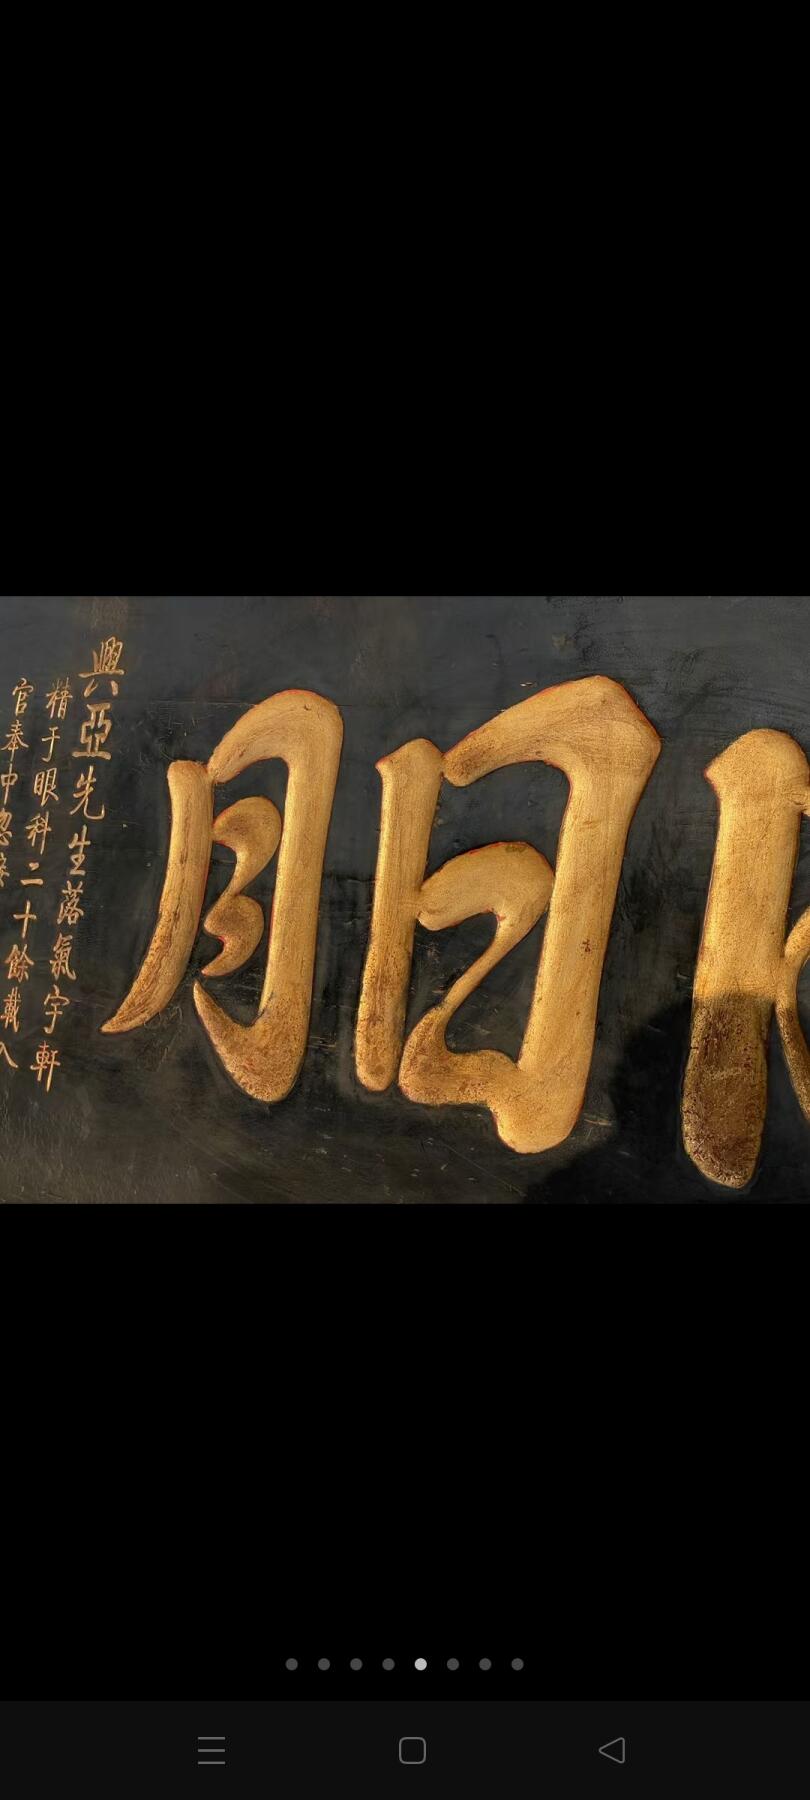 日月
興亞先生落氣宇軒
精于眼科二十餘載入
官奉中